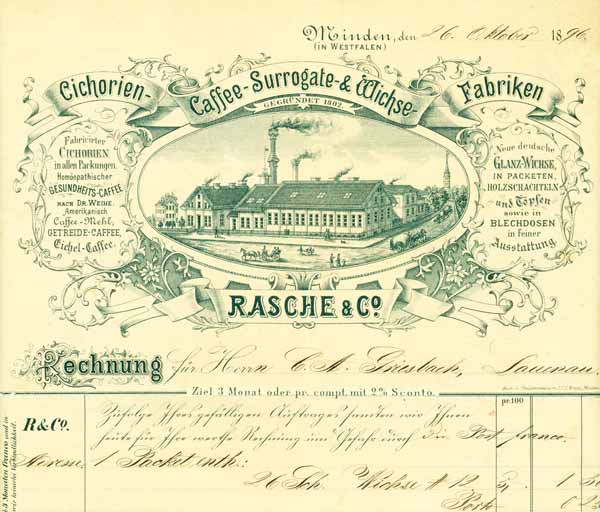 Minden, den 26. Oktober 1896.
(IN WESTFALEN)
Cichorien- Caffee-Surrogate- & Wichse- Fabriken
GEGRÜNDET 1802.
Fabricirter
CICHORIEN
in allen Packungen.
Homöopathischer
GESUNDHEITS-CAFFEE
NACH DR. WEIHE.
Amerikanisch
Caffee-Mehl,
GETREIDE-CAFFEE,
Eichel-Caffee.
Neue deutsche
GLANZ-WICHSE,
IN PACKETEN,
HOLZSCHACHTELN
und Töpfen
sowie in
BLECHDOSEN
in feiner
Ausstattung.
RASCHE & Co.
Rechnung für Herrn C. A. Griesbach, Lauenau.
Ziel 3 Monat oder pr. compt. mit 2% Sconto.
pr. 100
R & Co. Zufolge Ihres gefälligen Auftrages sandten wir Ihnen
heute für Ihre werthe Rechnung und Gefahr durch die Post, franco.
Adresse 1 Packet enth:
26 Sch. Wichse # 12
Porto